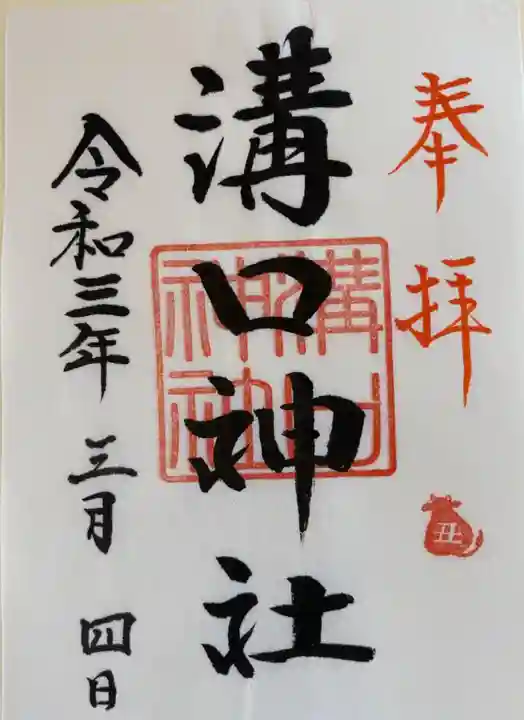 奉拝
丑
溝口神社
溝口神社
令和三年三月四日